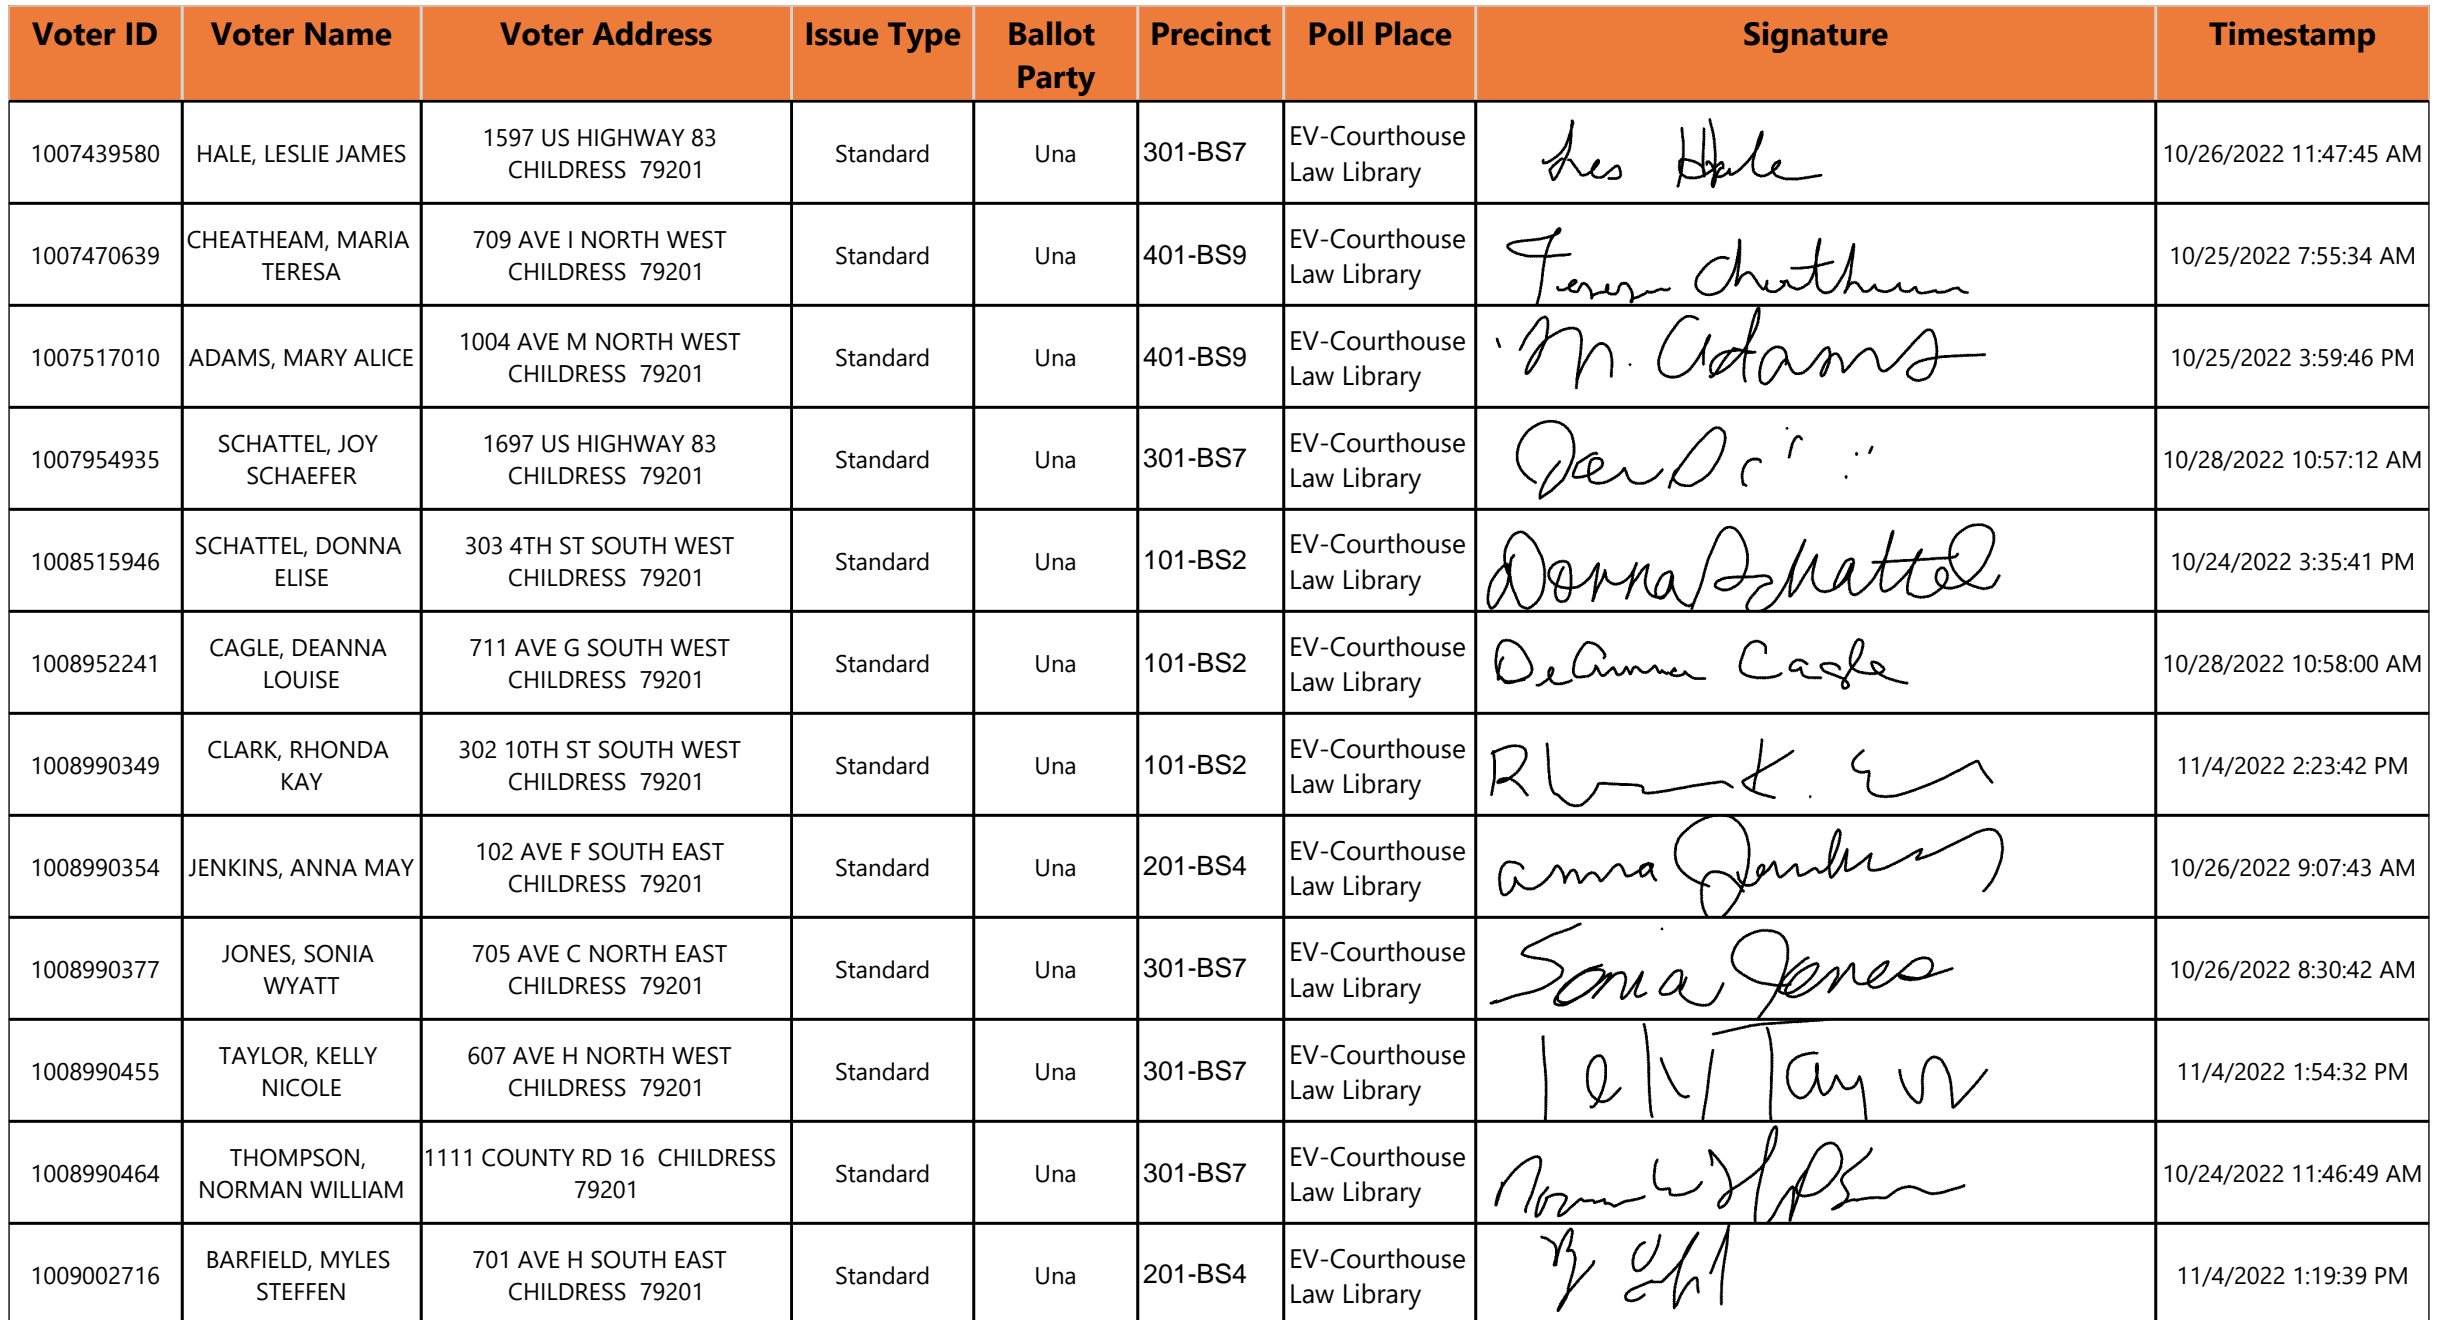 Voter ID Voter Name Voter Address Issue Type Ballot Party Precinct Poll Place Signature Timestamp
1007439580 HALE, LESLIE JAMES 1597 US HIGHWAY 83 CHILDRESS 79201 Standard Una 301-BS7 EV-Courthouse Law Library Les Hale 10/26/2022 11:47:45 AM
1007470639 CHEATHEAM, MARIA TERESA 709 AVE I NORTH WEST CHILDRESS 79201 Standard Una 401-BS9 EV-Courthouse Law Library 10/25/2022 7:55:34 AM
1007517010 ADAMS, MARY ALICE 1004 AVE M NORTH WEST CHILDRESS 79201 Standard Una 401-BS9 EV-Courthouse Law Library M. Adams 10/25/2022 3:59:46 PM
1007954935 SCHATTEL, JOY SCHAEFER 1697 US HIGHWAY 83 CHILDRESS 79201 Standard Una 301-BS7 EV-Courthouse Law Library 10/28/2022 10:57:12 AM
1008515946 SCHATTEL, DONNA ELISE 303 4TH ST SOUTH WEST CHILDRESS 79201 Standard Una 101-BS2 EV-Courthouse Law Library Donna Schattel 10/24/2022 3:35:41 PM
1008952241 CAGLE, DEANNA LOUISE 711 AVE G SOUTH WEST CHILDRESS 79201 Standard Una 101-BS2 EV-Courthouse Law Library DeAnna Cagle 10/28/2022 10:58:00 AM
1008990349 CLARK, RHONDA KAY 302 10TH ST SOUTH WEST CHILDRESS 79201 Standard Una 101-BS2 EV-Courthouse Law Library 11/4/2022 2:23:42 PM
1008990354 JENKINS, ANNA MAY 102 AVE F SOUTH EAST CHILDRESS 79201 Standard Una 201-BS4 EV-Courthouse Law Library Anna Jenkins 10/26/2022 9:07:43 AM
1008990377 JONES, SONIA WYATT 705 AVE C NORTH EAST CHILDRESS 79201 Standard Una 301-BS7 EV-Courthouse Law Library Sonia Jones 10/26/2022 8:30:42 AM
1008990455 TAYLOR, KELLY NICOLE 607 AVE H NORTH WEST CHILDRESS 79201 Standard Una 301-BS7 EV-Courthouse Law Library 11/4/2022 1:54:32 PM
1008990464 THOMPSON, NORMAN WILLIAM 1111 COUNTY RD 16 CHILDRESS 79201 Standard Una 301-BS7 EV-Courthouse Law Library 10/24/2022 11:46:49 AM
1009002716 BARFIELD, MYLES STEFFEN 701 AVE H SOUTH EAST CHILDRESS 79201 Standard Una 201-BS4 EV-Courthouse Law Library 11/4/2022 1:19:39 PM